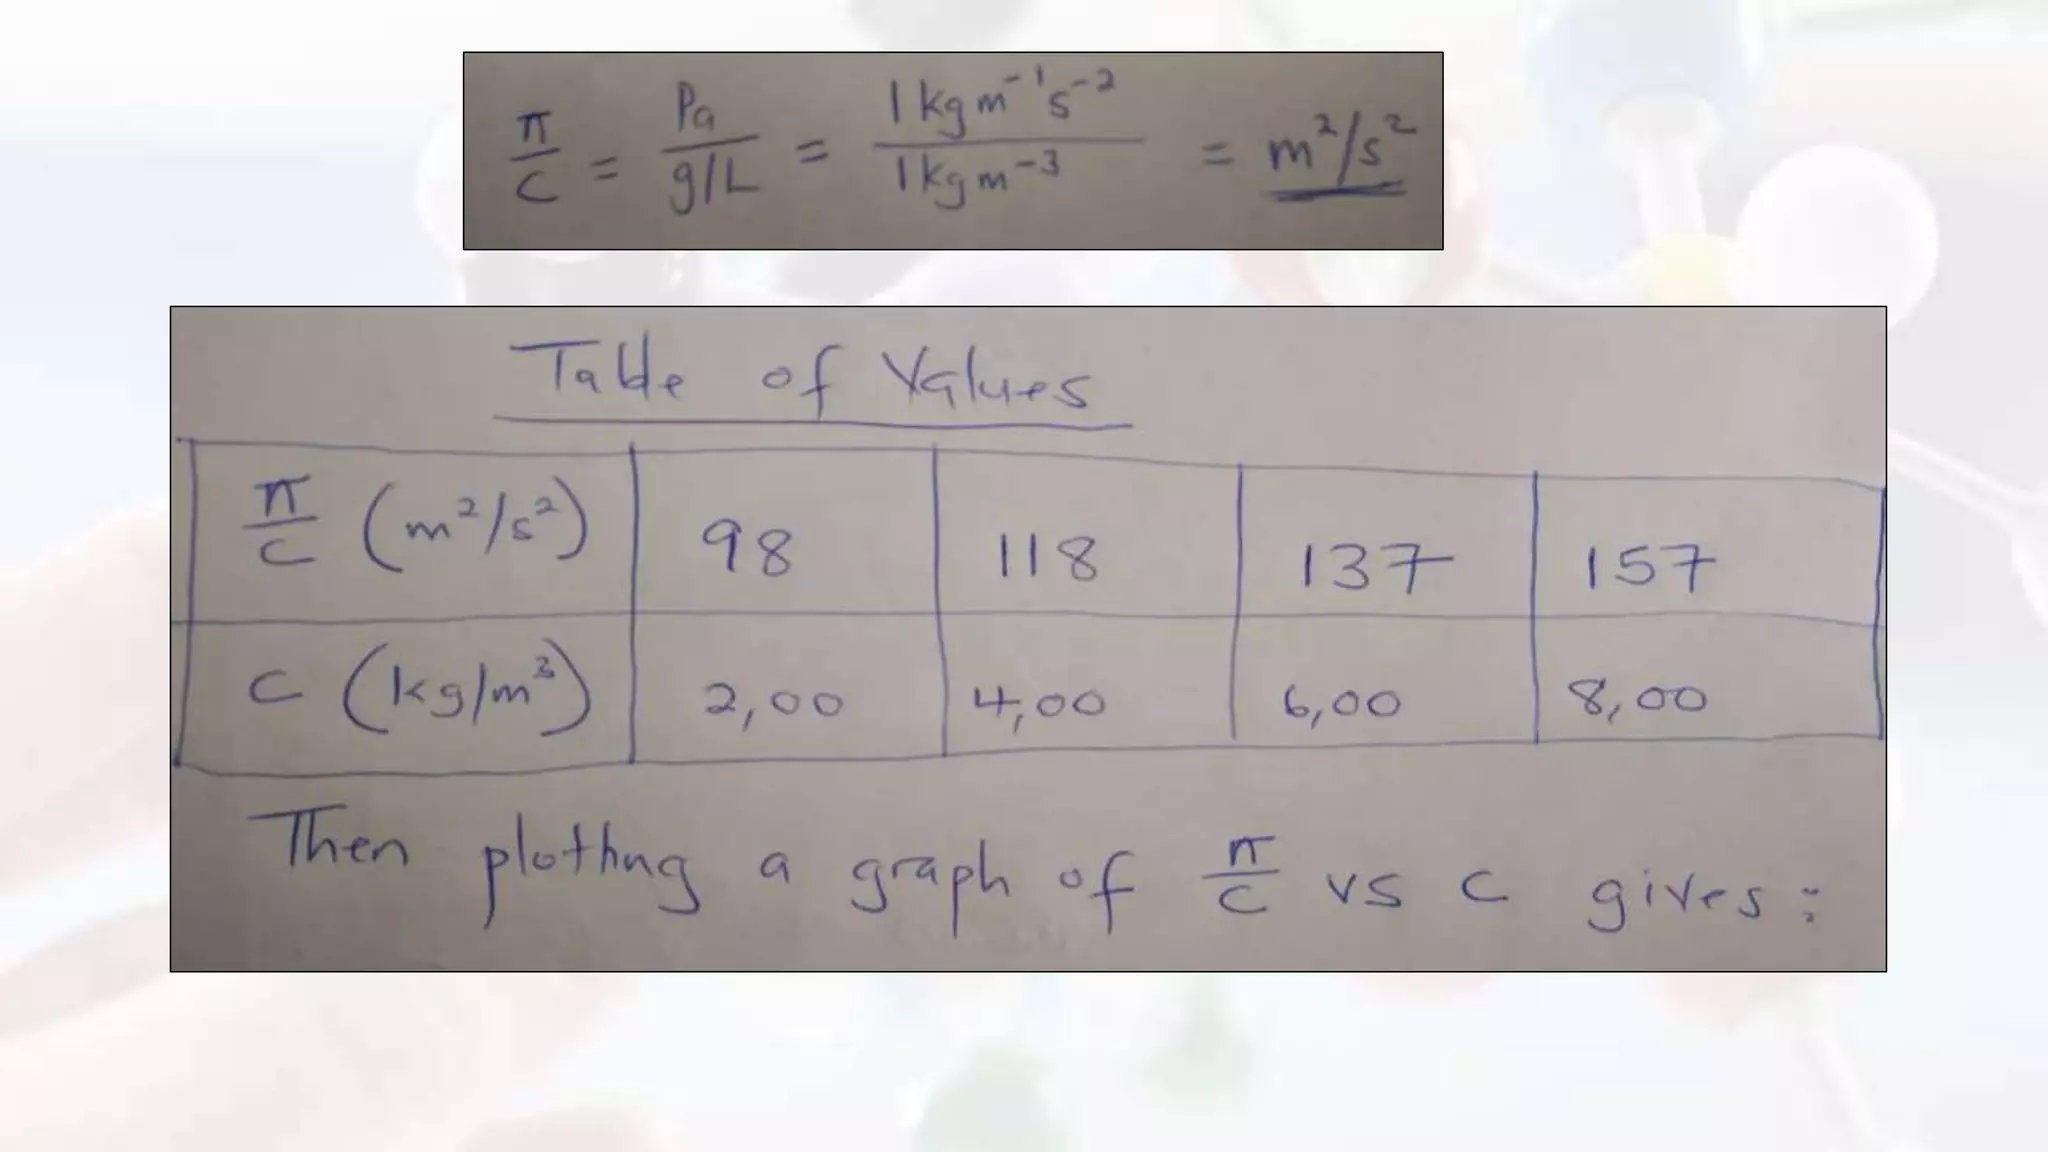 π/c = Pa/g/L = 1kgm⁻¹s⁻²/1kgm⁻³ = m²/s²
Table of Values
π/c (m²/s²) 98 118 137 157
c (kg/m³) 2,00 4,00 6,00 8,00
Then plotting a graph of π/c vs c gives: